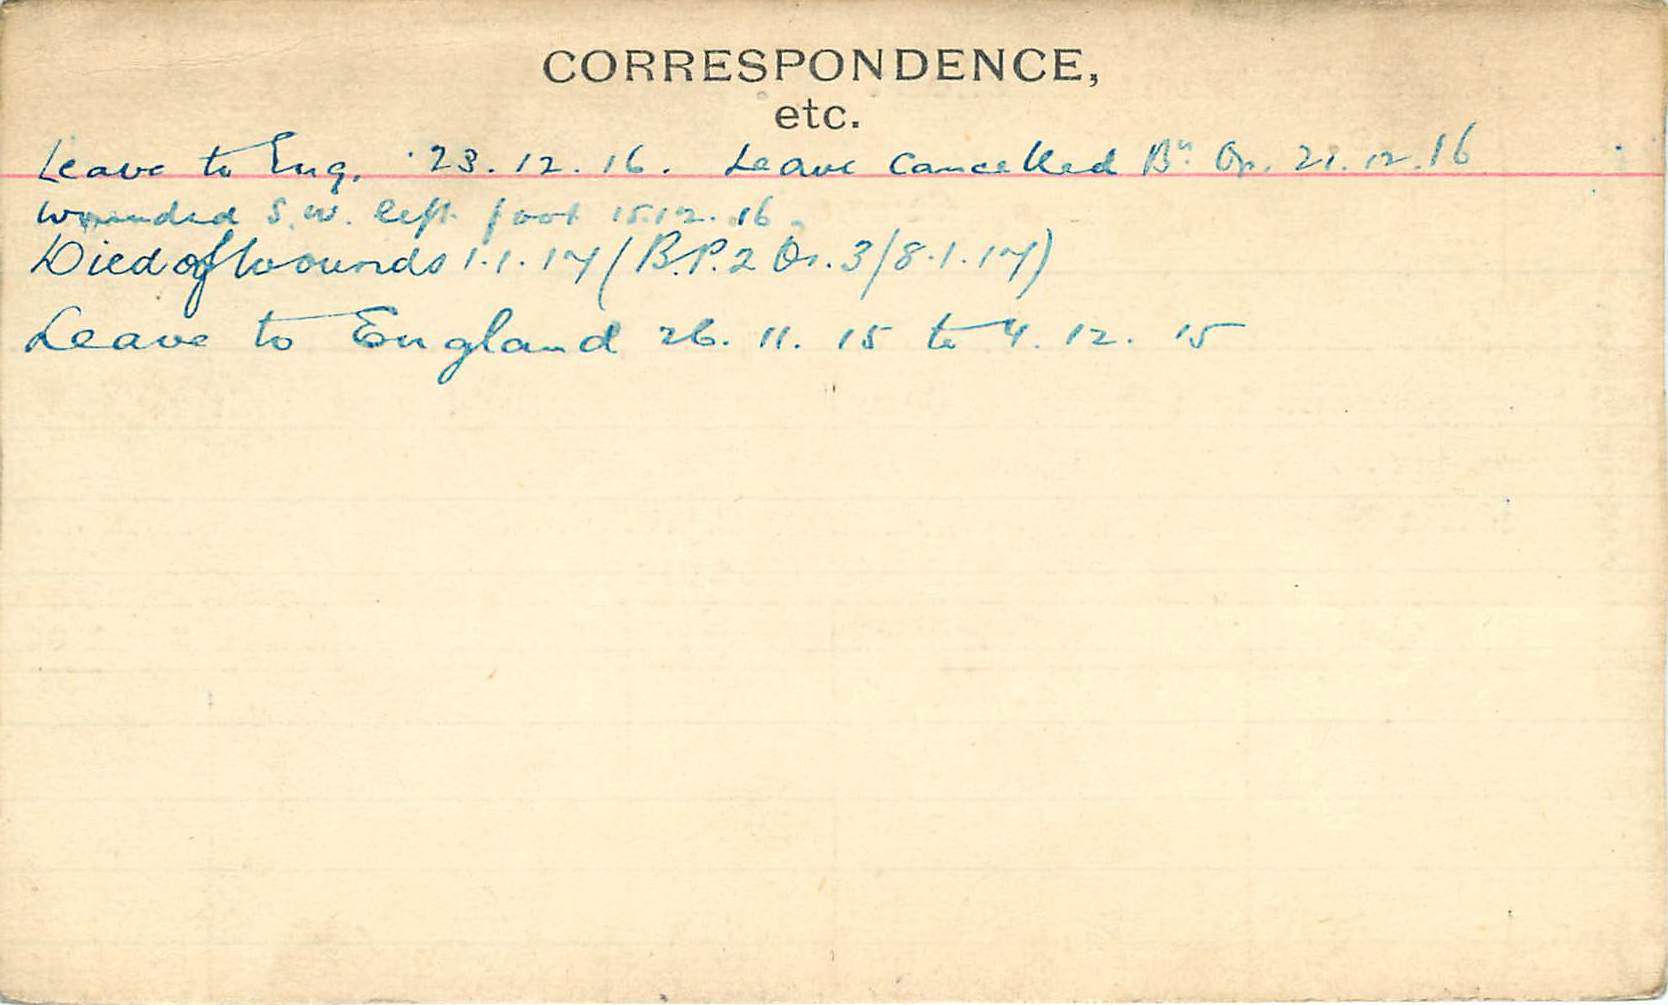 CORRESPONDENCE,
etc.
Leave to Eng. 23.12.16. Leave Cancelled Bn Op. 21.12.16
Wounded S.W. left foot 15.12.16.
Died of Wounds 1.1.17 (B.P.2 Or. 3/8.1.17)
Leave to England 26.11.15 to 4.12.15